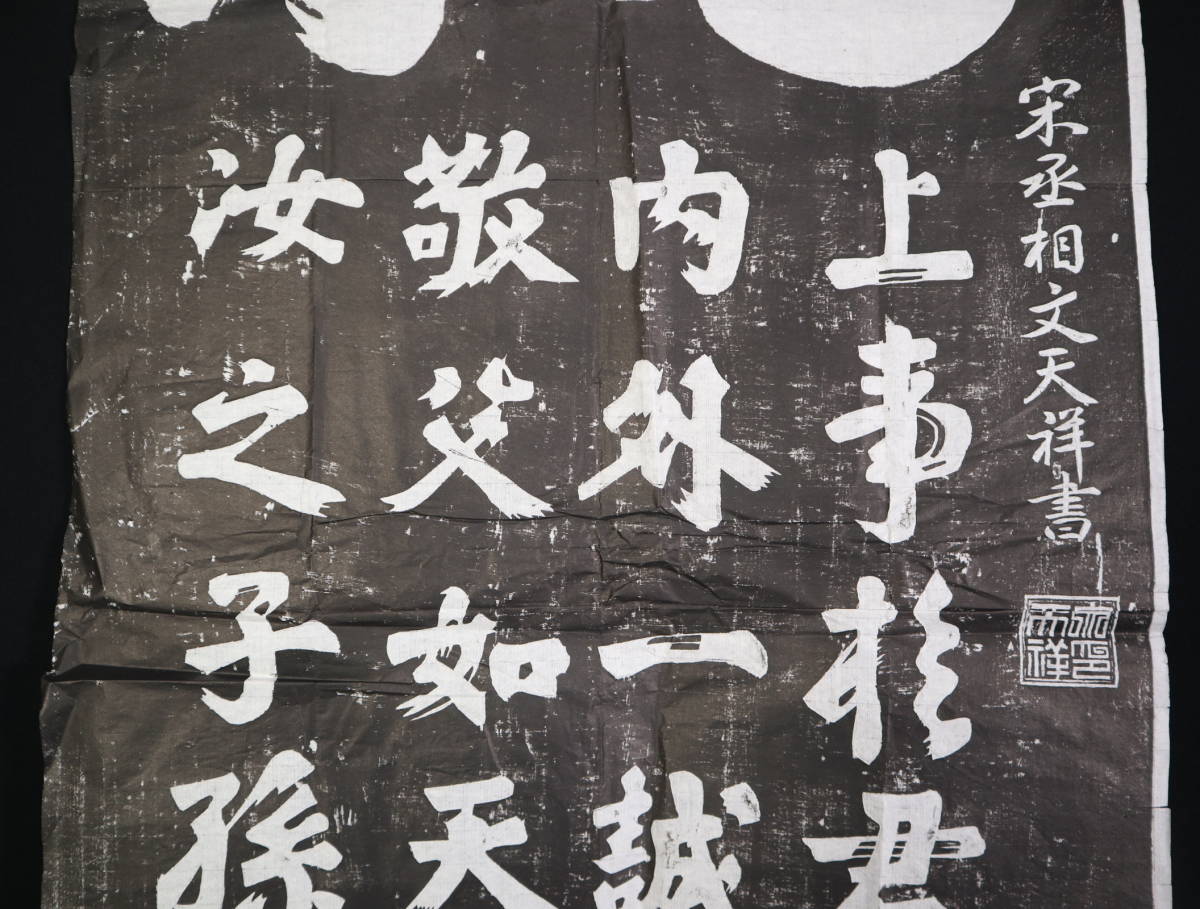 宋丞相文天祥書
上事於君
內外一誠
敬父如天
汝之子孫